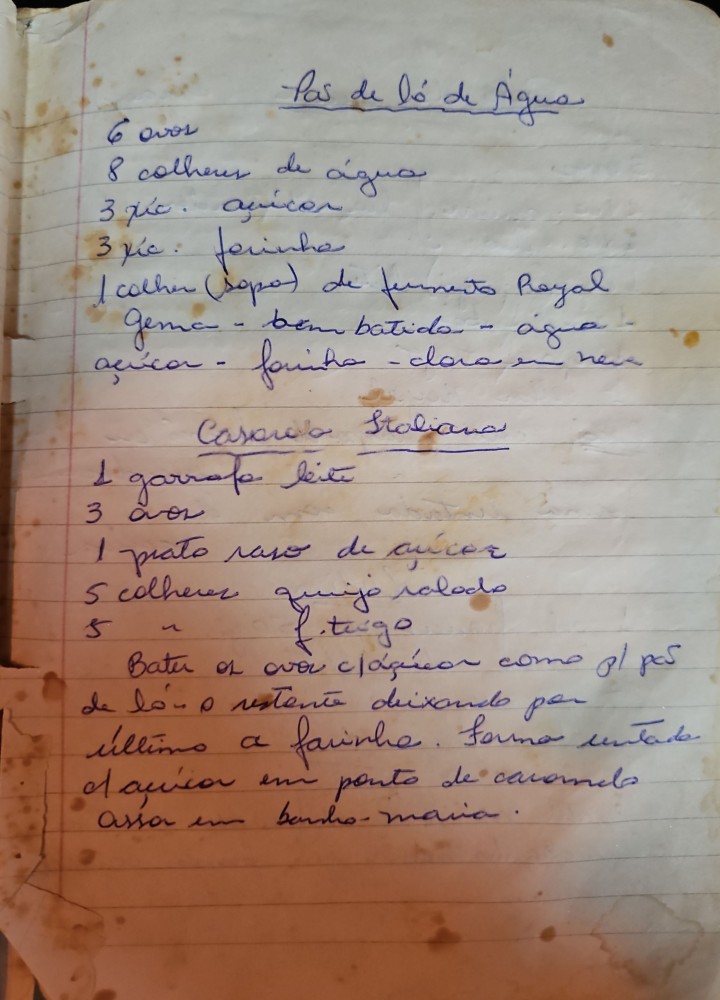 Pão de ló de Água
6 ovos
8 colheres de água
3 xíc. açúcar
3 xíc. farinha
1 colher (sopa) de fermento Royal
Gema - bem batida - água -
açúcar - farinha - clara em neve
Italiana
1 garrafa leite
3 ovos
1 prato raso de açúcar
5 colheres queijo ralado
5 " f. trigo
Bater os ovos c/ açúcar como p/ pão
de ló - o restante deixando por
último a farinha. Forma untada
c/ açúcar em ponto de caramelo
assar em banho-maria.